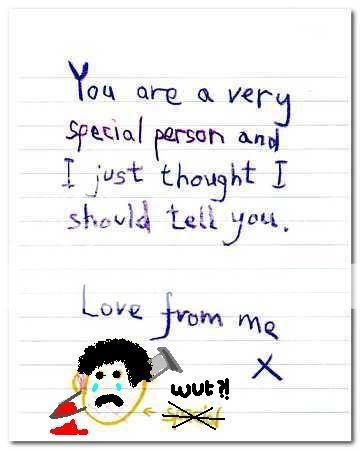 You are a very
special person and
I just thought I
should tell you.
Love from me
X
wut?!